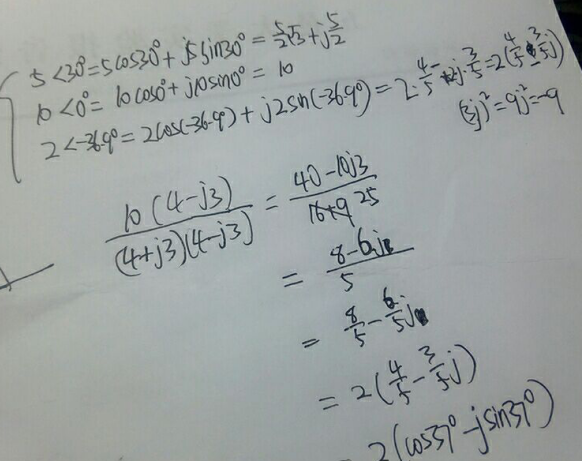 5<30°=5cos30°+j5sin30°=5/2√3+j5/2
10<0°=10cos0°+j10sin0°=10
2<-36.9°=2cos(-36.9)+j2sin(-36.9°)=2·4/5-2j·3/5=2(4/5-3/5j)
(3j)²=9j²=-9
10(4-j3)/(4+j3)(4-j3)=40-10j3/16+9 25
=8-6j/5
=8/5-6/5j
=2(4/5-3/5j)
2(cos37°-jsin37°)